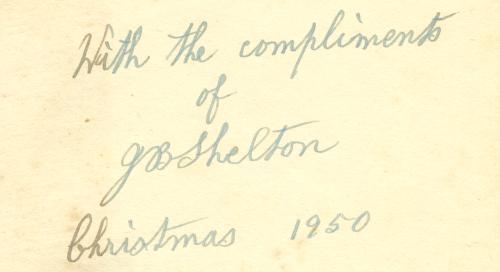 With the compliments
of
GB Shelton
Christmas 1950